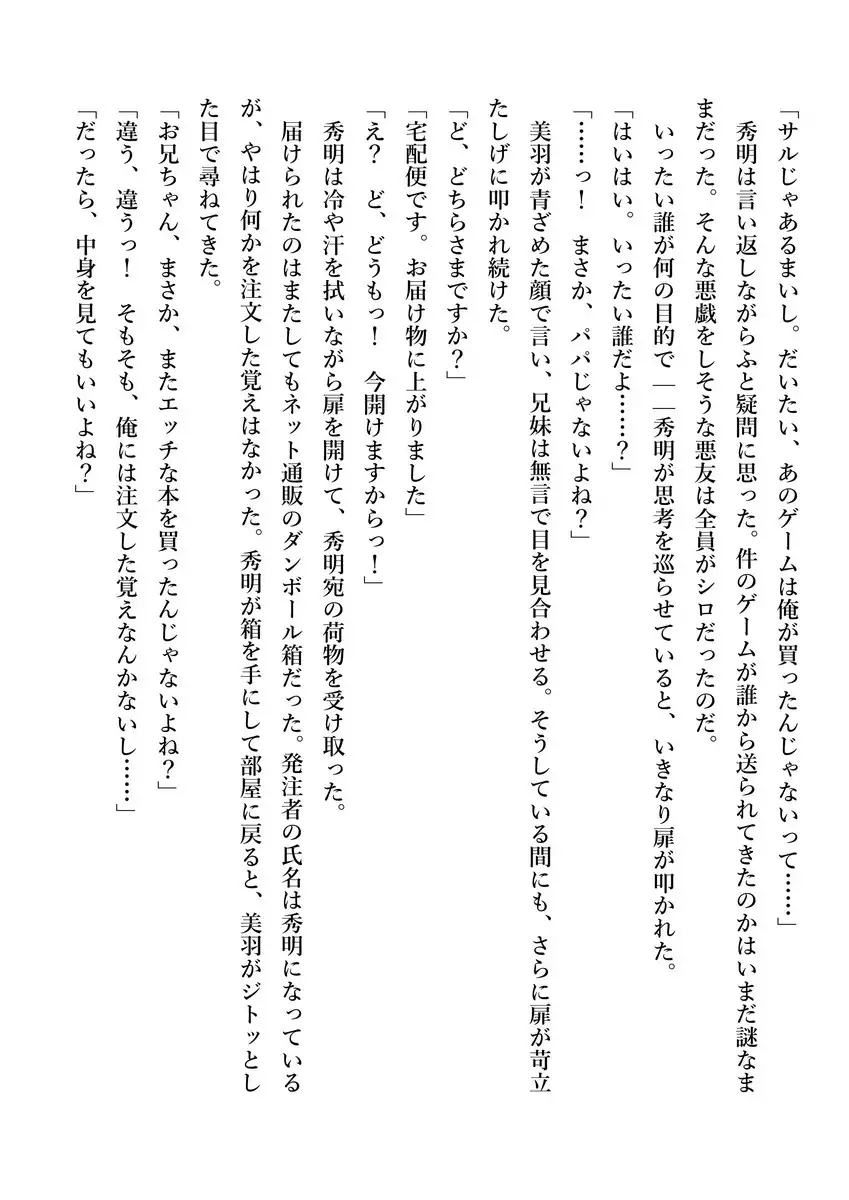 「サルじゃあるまいし。だいたい、あのゲームは俺が買ったんじゃないって……」
　秀明は言い返しながらふと疑問に思った。件のゲームが誰から送られてきたのかはいまだ謎なま
まだった。そんな悪戯をしそうな悪友は全員がシロだったのだ。
　いったい誰が何の目的で――秀明が思考を巡らせていると、いきなり扉が叩かれた。
「はいはい。いったい誰だよ……？」
「……っ！　まさか、パパじゃないよね？」
　美羽が青ざめた顔で言い、兄妹は無言で目を見合わせる。そうしている間にも、さらに扉が苛立
たしげに叩かれ続けた。
「ど、どちらさまですか？」
「宅配便です。お届け物に上がりました」
「え？　ど、どうもっ！　今開けますからっ！」
　秀明は冷や汗を拭いながら扉を開けて、秀明宛の荷物を受け取った。
　届けられたのはまたしてもネット通販のダンボール箱だった。発注者の氏名は秀明になっている
が、やはり何かを注文した覚えはなかった。秀明が箱を手にして部屋に戻ると、美羽がジトッとし
た目で尋ねてきた。
「お兄ちゃん、まさか、またエッチな本を買ったんじゃないよね？」
「違う、違うっ！　そもそも、俺には注文した覚えなんかないし……」
「だったら、中身を見てもいいよね？」